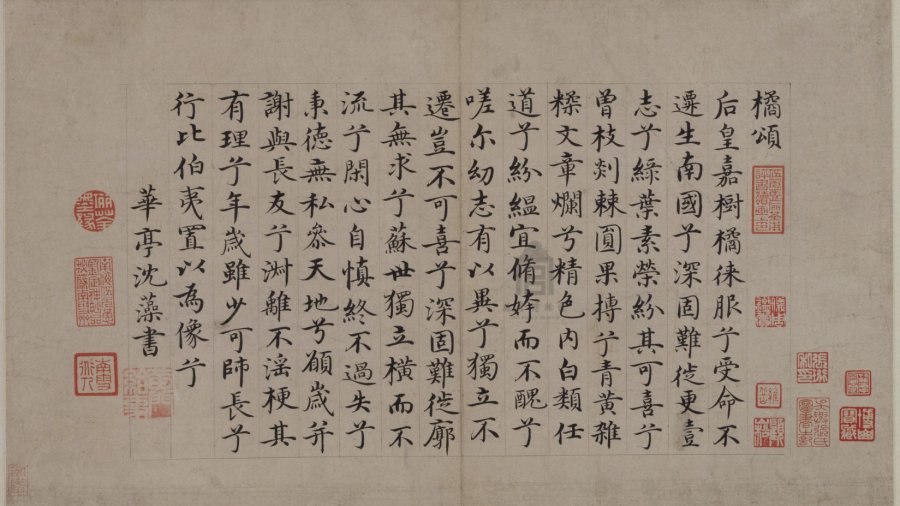 橘頌
后皇嘉樹橘徠服兮受命不
遷生南國兮深固難徙更壹
志兮緑葉素榮紛其可喜兮
曾枝剡棘圓果摶兮青黃雜
糅文章爛兮精色內白類任
道兮紛緼宜脩姱而不醜兮
嗟尔幼志有以異兮獨立不
遷豈不可喜兮深固難徙廓
其無求兮蘇世獨立橫而不
流兮閑心自慎終不過失兮
秉德無私參天地兮願歲并
謝與長友兮淑離不淫梗其
有理兮年歲雖少可師長兮
行比伯夷置以為像兮
華亭沈藻書